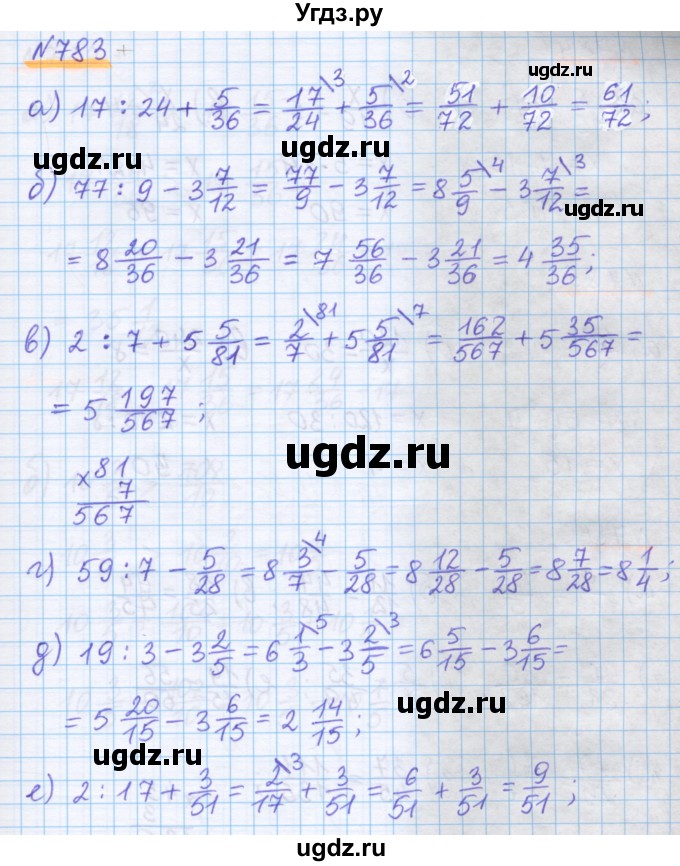 Угдз.ру
№783
ugdz.ru
а) 17 : 24 + 5/36 = 17/24\3 + 5/36\2 = 51/72 + 10/72 = 61/72;
ugdz.ru
ugdz.ru
б) 77 : 9 - 3 7/12 = 77/9 - 3 7/12 = 8 5/9\4 - 3 7/12\3 =
ugdz.ru
= 8 20/36 - 3 21/36 = 7 56/36 - 3 21/36 = 4 35/36;
ugdz.ru
в) 2 : 7 + 5 5/81 = 2/7\81 + 5 5/81\7 = 162/567 + 5 35/567 =
= 5 197/567;
ugdz.ru
ugdz.ru
×81
7
567
ugdz.ru
г) 59 : 7 - 5/28 = 8 3/7\4 - 5/28 = 8 12/28 - 5/28 = 8 7/28 = 8 1/4;
ugdz.ru
д) 19 : 3 - 3 2/5 = 6 1/3\5 - 3 2/5\3 = 6 5/15 - 3 6/15 =
ugdz.ru
= 5 20/15 - 3 6/15 = 2 14/15;
ugdz.ru
е) 2 : 17 + 3/51 = 2/17\3 + 3/51 = 6/51 + 3/51 = 9/51;
ugdz.ru
ugdz.ru